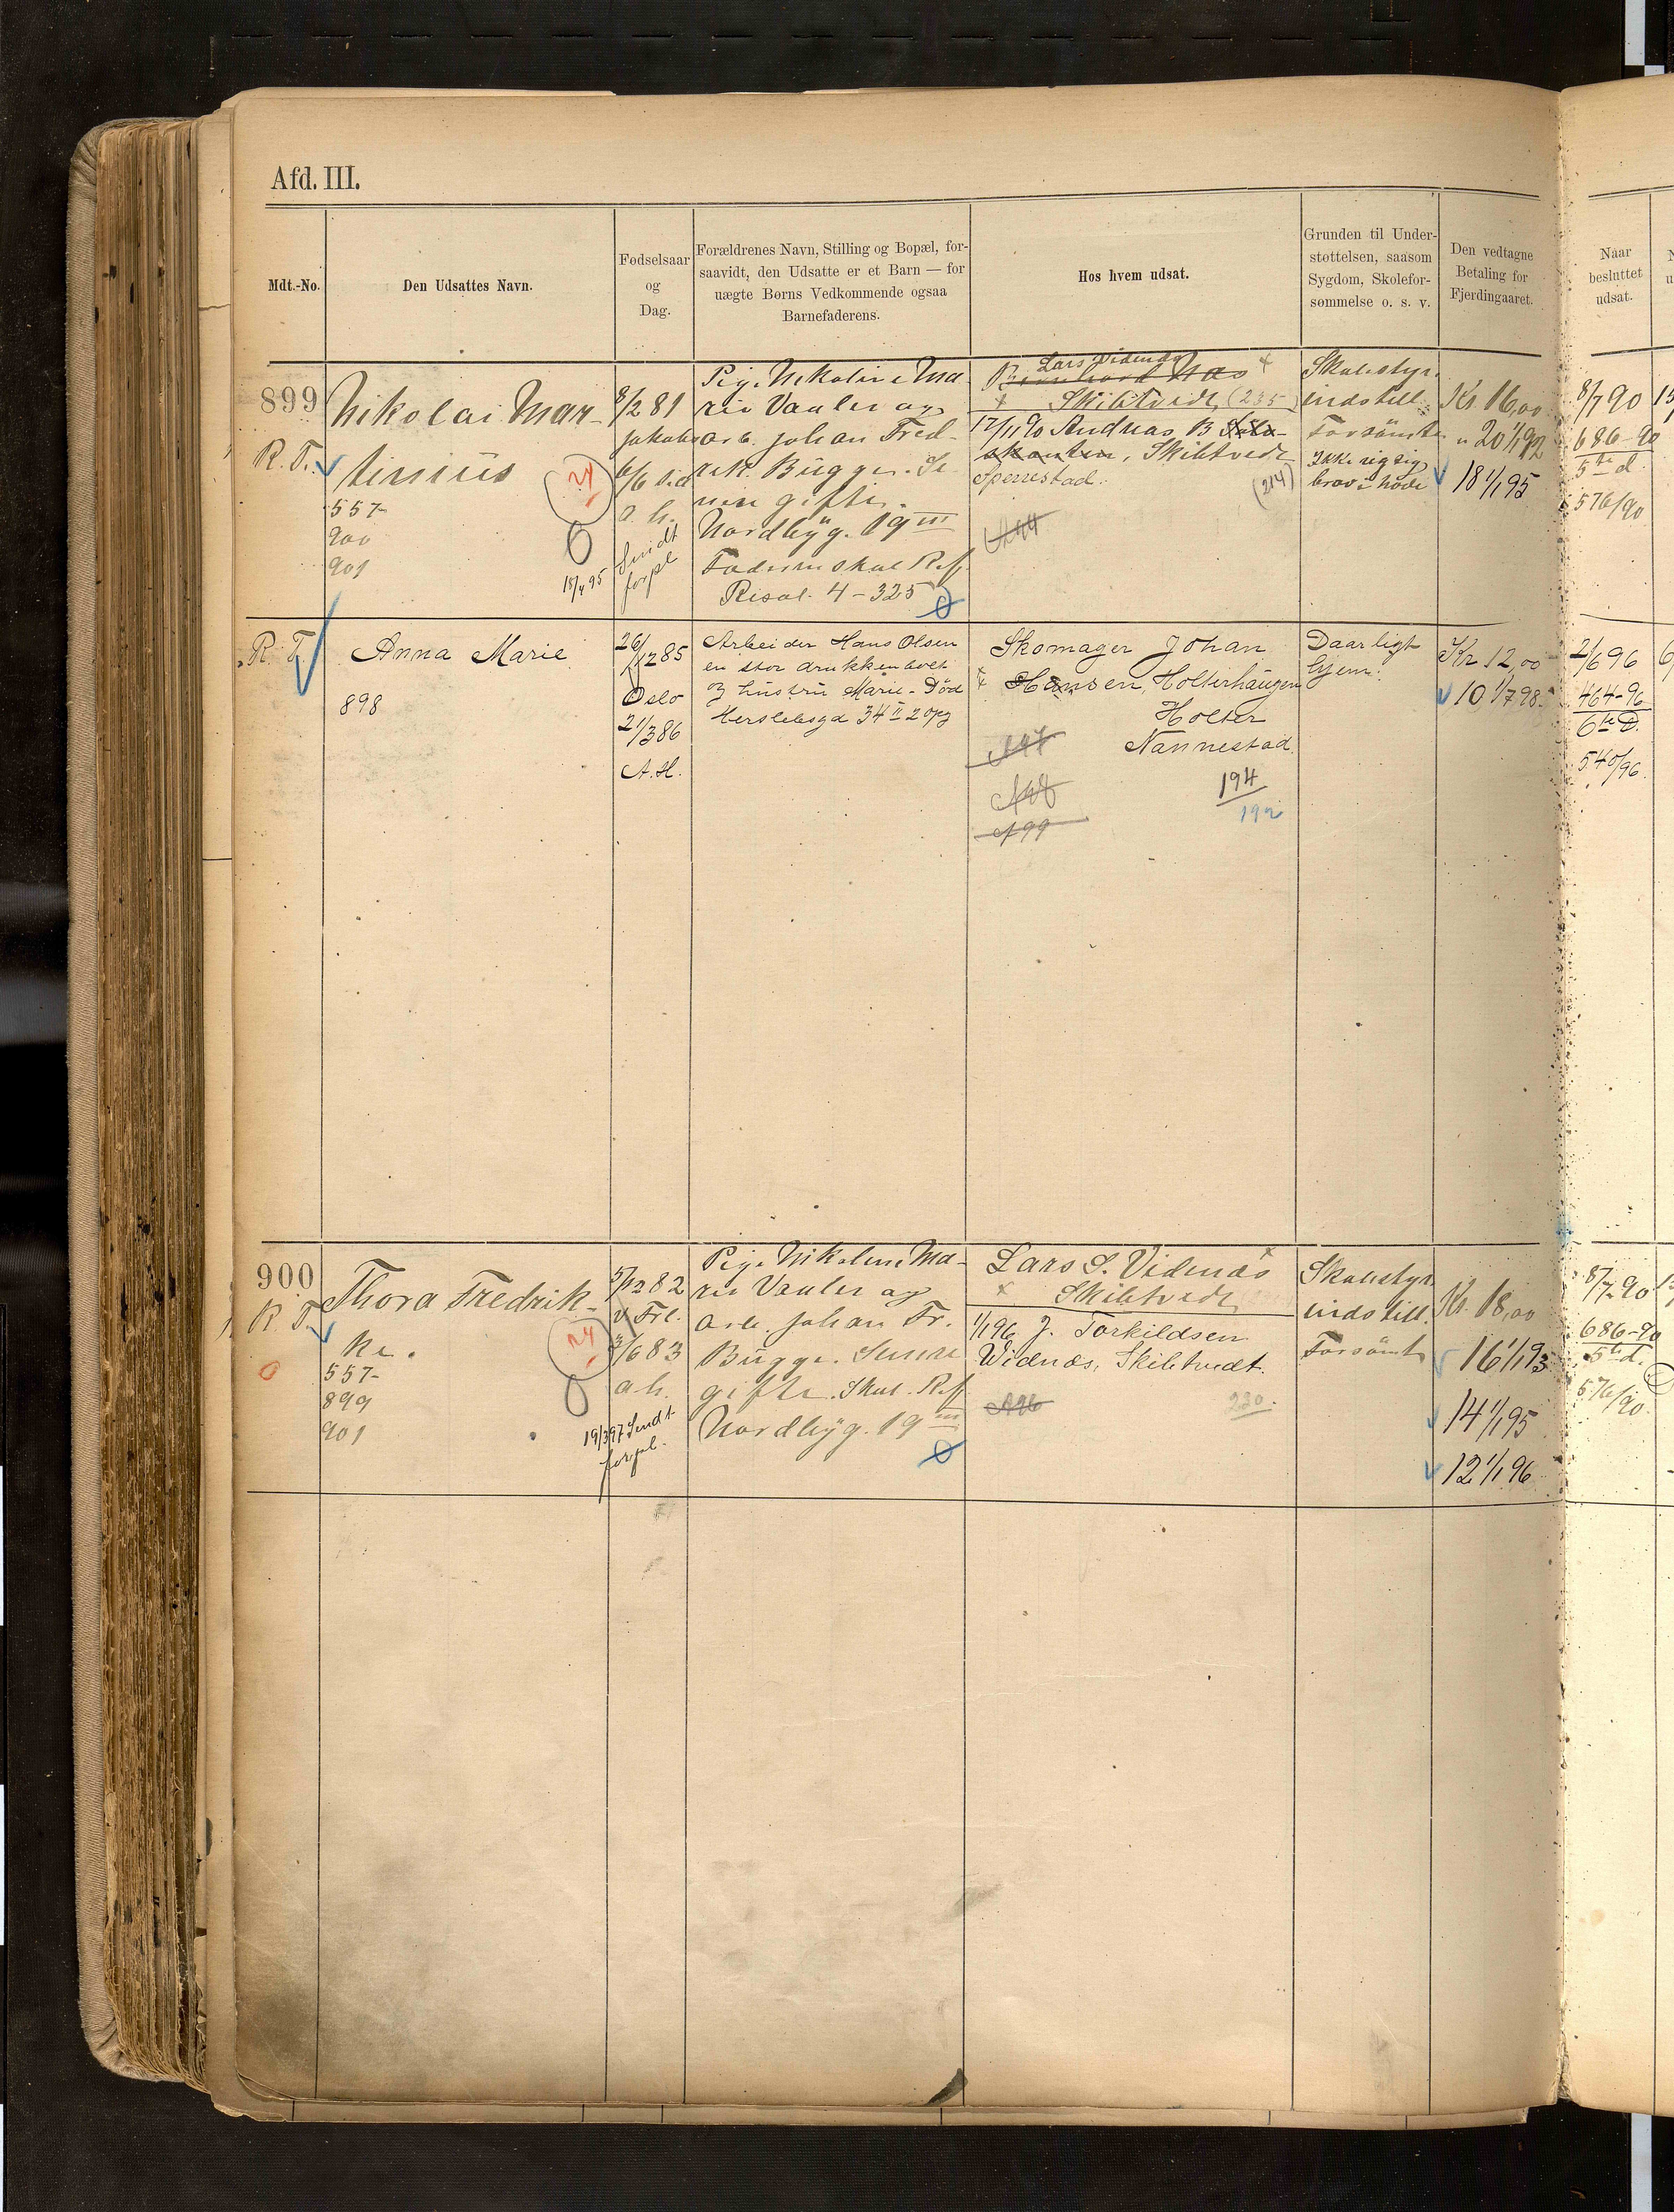 Afd. III.
Mdt.-No.
Den Udsattes Navn.
Fødselsaar
og
Dag.
Forældrenes Navn, Stilling og Bopæl, for-
saavidt, den Udsatte er et Barn — for
uægte Børns Vedkommende ogsaa
Barnefaderens.
Hos hvem udsat.
Grunden til Under-
støttelsen, saasom
Sygdom, Skolefor-
sømmelse o. s. v.
Den vedtagne
Betaling for
Fjerdingaaret.
Naar
besluttet
udsat.
899
R. T.
Nikolai Mar-
tinius
557
900
901
24
15/4 95
8/2 81
Jakobs
6/6 s.a.
a. h.
Sendt
forpl
Pige Nikoline Ma-
rie Vauler og
arb. Johan Fred-
rik Bugge. Se-
nere gifte.
Nordbyg. 19 III
Faderen skal Ref.
Resol. 4-325
Lars Videnæs
Skibtvedt (235)
17/11 90 Andreas B
Skibtvedt
Spenestad.
(214)
Skolestyr.
indstill.
Forsömt
Ikke rigtig
brav i hode
Kr. 16,00
" 20 1/1 92
18 1/1 95
8/7 90
686-90
5te d.
576/90
R. T.
Anna Marie
898
26/12 85
Oslo
21/3 86
A. H.
Arbeider Hans Olsen
en stor drukkenbolt
og hustru Marie - Död
Herslebsgd 34 II 2 opg
Skomager Johan
Hansen, Holterhaugen
Holter
Nannestad.
194
192
Daarligt
hjem.
Kr 12,00
10 1/7 98
2/6 96
464-96
6te D.
540/96
900
R. T.
Thora Fredrik-
ke.
557-
899
901
24
5/12 82
V Frl.
3/6 83
a h.
19/3 97 Sendt
forpl.
Pige Nikoline Ma-
rie Vauler og
arb. Johan Fr.
Bugge. Senere
gifte. Skal Ref.
Nordbyg. 19 III
Lars S. Videnæs
Skibtvedt
1/1 96 J. Torkildsen
Widnæs, Skibtvedt.
230.
Skolestyr.
indstill.
Forsömt
Kr. 18,00
16 1/1 93
14 1/1 95
12 1/1 96
8/7 90
686-90
5te d.
576/90